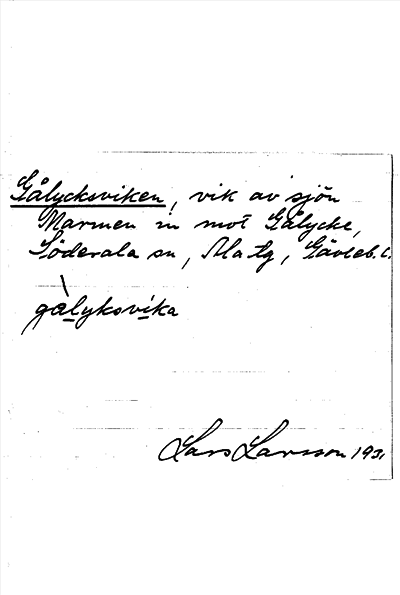 Gålycksviken, vik av sjön
Marmen in mot Gålycke,
Söderala sn, Ala tg, Gävleb. l.
gålyksvika
Lars Larsson 1931